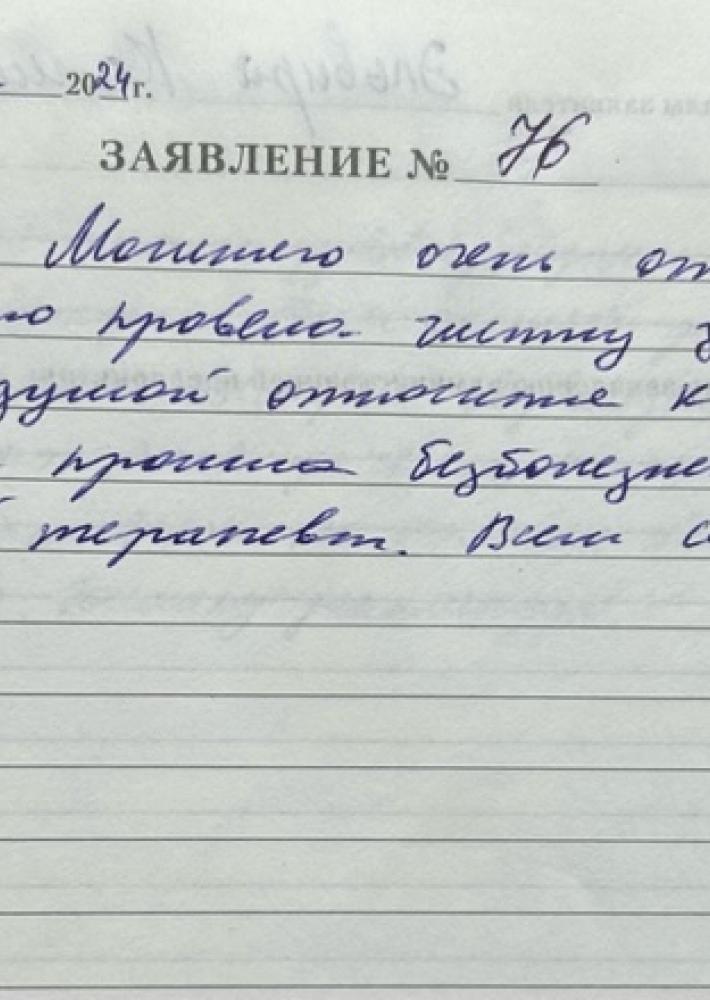 2024 г.
ЗАЯВЛЕНИЕ № 76
очень от
но провела чистку з
душой относится к
прошла безболезне
й терапевт. Всем с